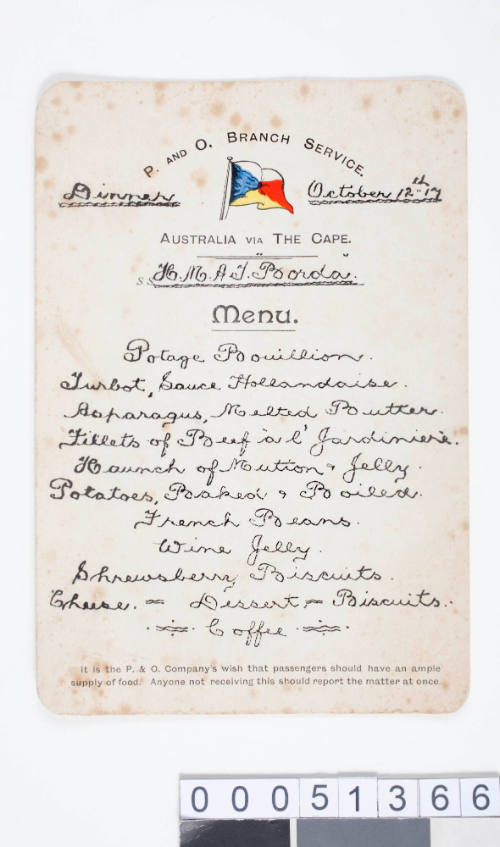 P. AND O. BRANCH SERVICE.
Dinner
October 12th-17
AUSTRALIA VIA THE CAPE.
S.S. "H.M.A.T. Borda."
Menu.
Potage Bouillion.
Turbot, Sauce Hollandaise.
Asparagus, Melted Butter.
Fillets of Beef à l' Jardinière.
Haunch of Mutton & Jelly.
Potatoes, Baked & Boiled.
French Beans.
Wine Jelly.
Shrewsberry Biscuits.
Cheese. = Dessert = Biscuits.
Coffee
It is the P. & O. Company's wish that passengers should have an ample
supply of food. Anyone not receiving this should report the matter at once.
00051366